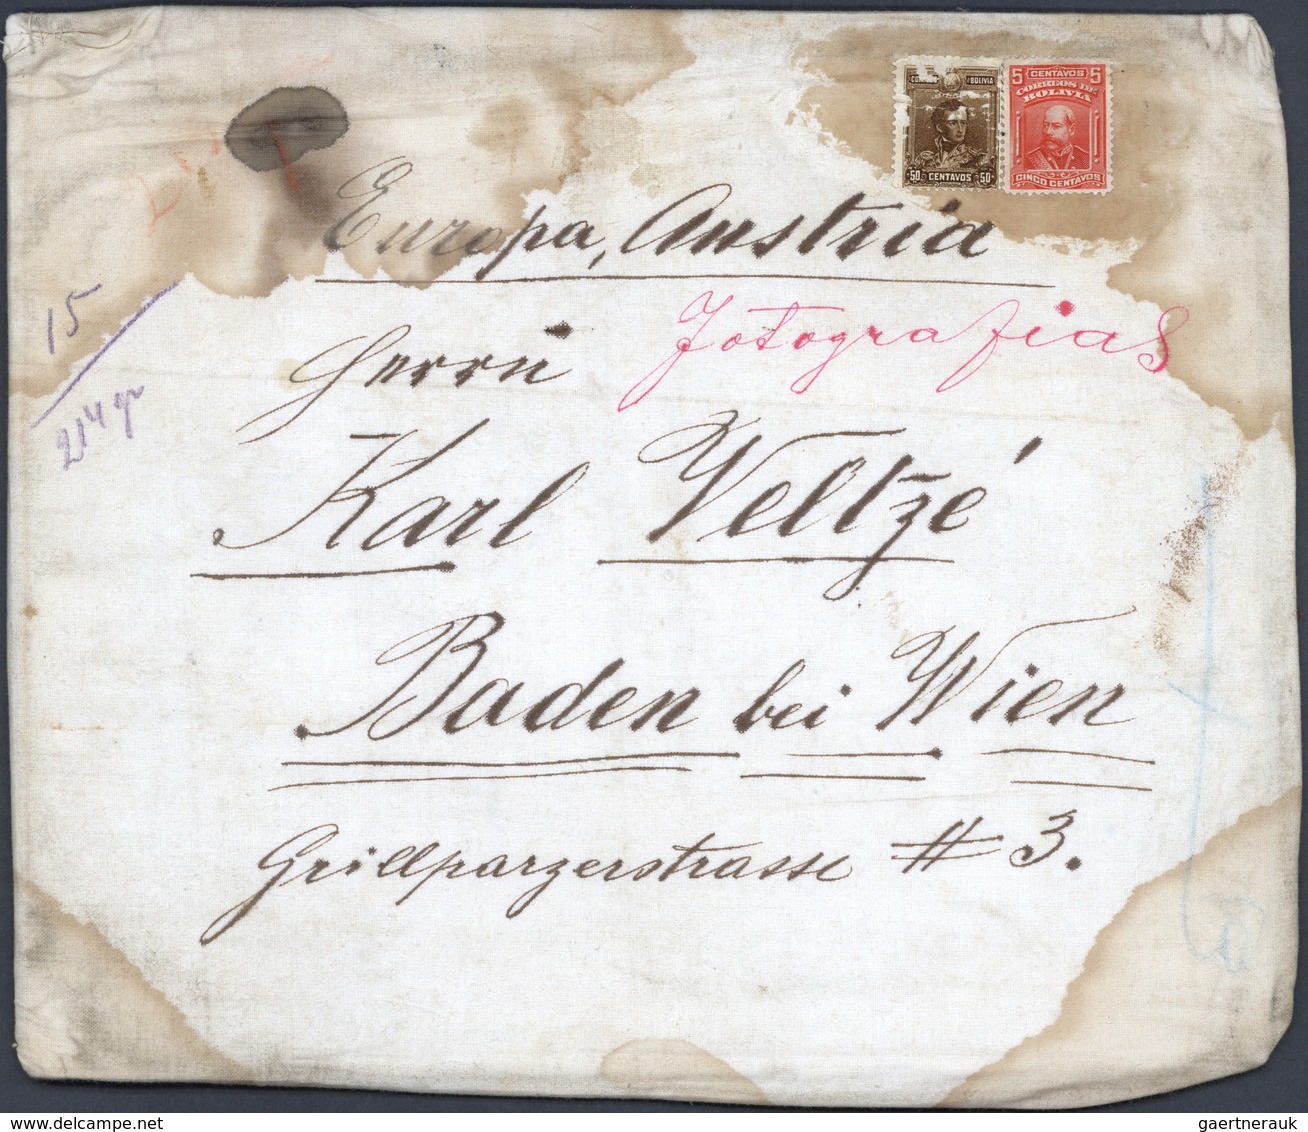 CORREOS DE BOLIVIA
50 CENTAVOS 50
5 CENTAVOS 5
CORREOS DE
BOLIVIA
CINCO CENTAVOS
Europa, Austria
Fotografias
15
214 gr
Herrn
Karl Veltzé
Baden bei Wien
Grillparzerstrasse # 3.
gaertnerauk